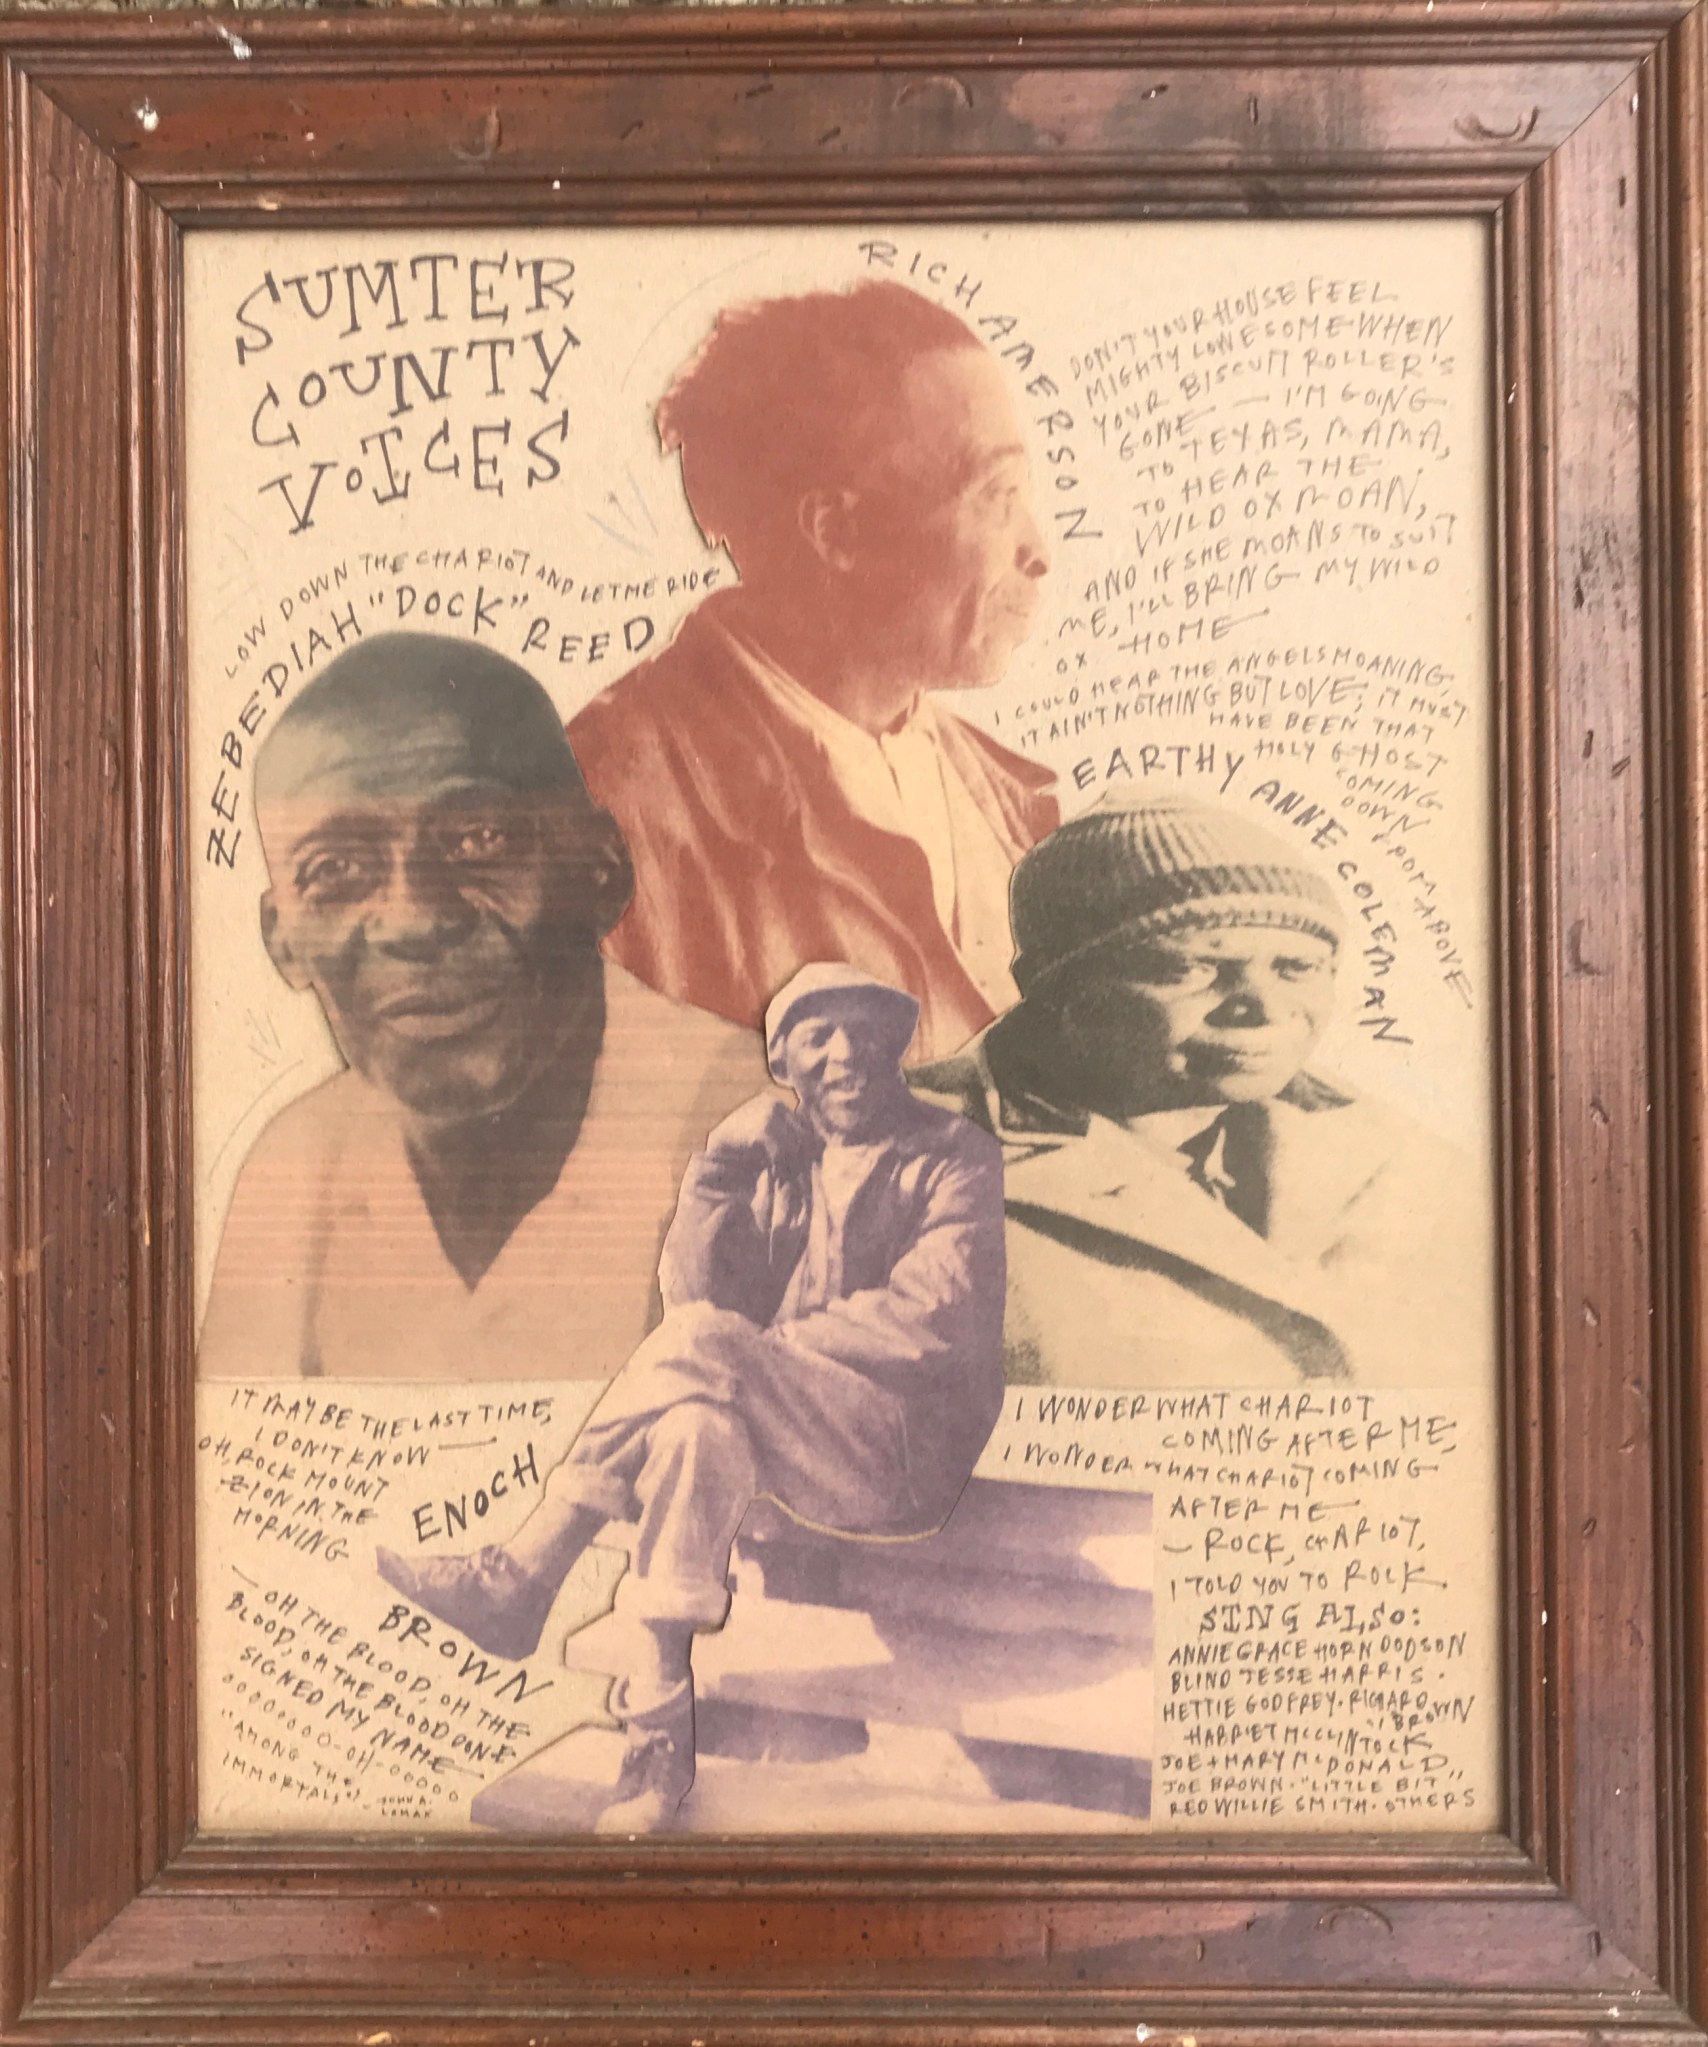 SUMTER
COUNTY
VOICES
LOW DOWN THE CHARIOT AND LET ME RIDE
ZEBEDIAH "DOCK" REED
RICH AMERSON
DON'T YOUR HOUSE FEEL
MIGHTY LONESOME WHEN
YOUR BISCUIT ROLLER'S
GONE — I'M GOING
TO TEXAS, MAMA,
TO HEAR THE
WILD OX MOAN,
AND IF SHE MOANS TO SUIT
ME, I'LL BRING MY WILD
OX HOME
I COULD HEAR THE ANGELS MOANING,
IT AIN'T NOTHING BUT LOVE; IT MUST
HAVE BEEN THAT
HOLY GHOST
COMING
DOWN
FROM ABOVE
EARTHY ANNE COLEMAN
IT MAY BE THE LAST TIME,
I DON'T KNOW —
OH, ROCK MOUNT
ZION IN THE
MORNING
ENOCH
BROWN
— OH THE BLOOD, OH THE
BLOOD, OH THE BLOOD DONE
SIGNED MY NAME
OOOOOOO-OH-OOOOO
"AMONG THE
IMMORTALS" – JOHN A.
LOMAX
I WONDER WHAT CHARIOT
COMING AFTER ME,
I WONDER WHAT CHARIOT COMING
AFTER ME
— ROCK, CHARIOT,
I TOLD YOU TO ROCK
SING ALSO:
ANNIE GRACE HORN DODSON
BLIND JESSE HARRIS.
HETTIE GODFREY. RICHARD
BROWN
HARRIET MCCLINTOCK
JOE + MARY MCDONALD
JOE BROWN. "LITTLE BIT"
RED WILLIE SMITH. OTHERS